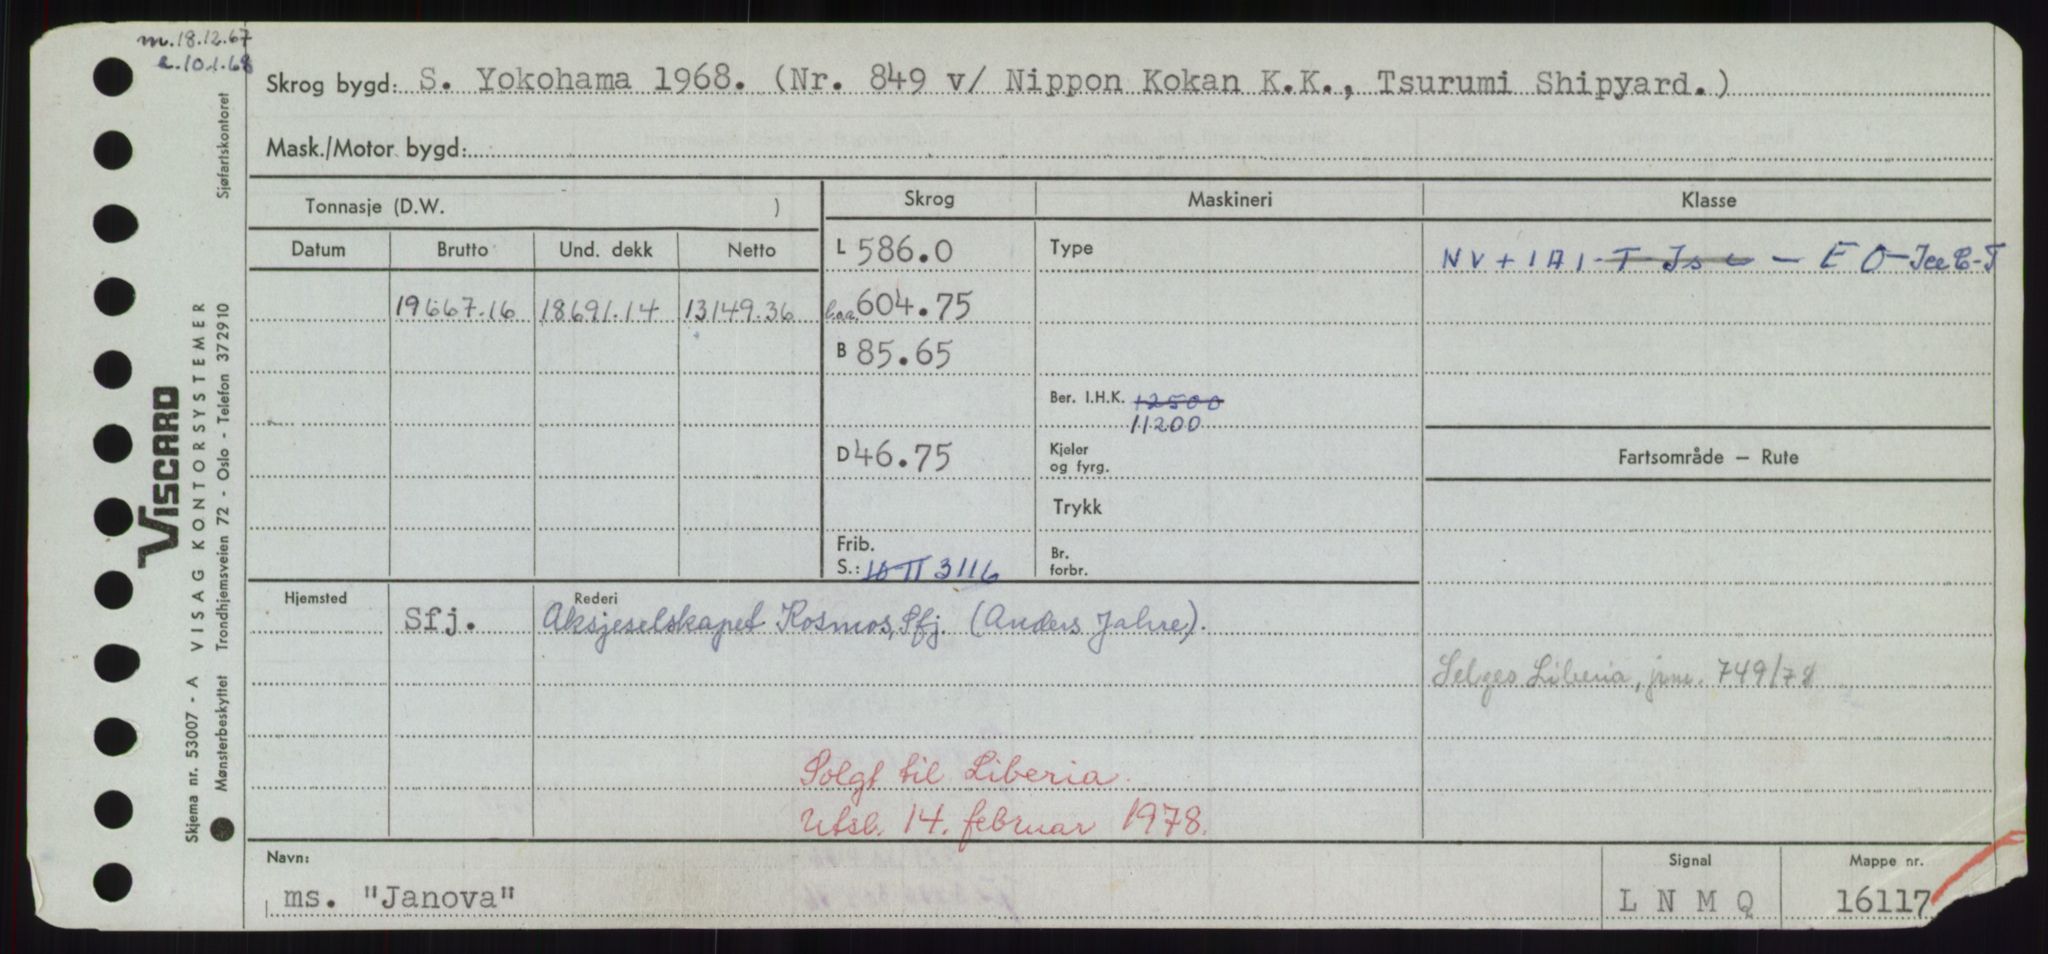 m.18.12.67
a.10.1.68
Skrog bygd: S. Yokohama 1968. (Nr. 849 v/ Nippon Kokan K.K., Tsurumi Shipyard.)
Mask./Motor bygd:
Tonnasje (D.W. )
Skrog
Maskineri
Klasse
Datum Brutto Und. dekk Netto
L 586.0
Type
NV+1A1-T-Is C - EO-Ice C-T
19667.16 18691.14 13149.36
l.o.a. 604.75
B 85.65
Ber. I.H.K. 12500
11200
D 46.75
Kjeler
og fyrg.
Fartsområde — Rute
Trykk
Frib.
S.: 10 TT 3116
Br.
forbr.
Hjemsted
Rederi
Sfj. Aksjeselskapet Kosmos, Sfj. (Anders Jahre).
Selges Liberia, jnr. 749/78
Solgt til Liberia.
Utsl. 14. februar 1978.
Navn:
ms. "Janova"
Signal
L N M Q
Mappe nr.
16117
Skjema nr. 53007 - A VISAG KONTORSYSTEMER
Mønsterbeskyttet Trondhjemsveien 72 - Oslo - Telefon 372910
Sjøfartskontoret
VISCARD